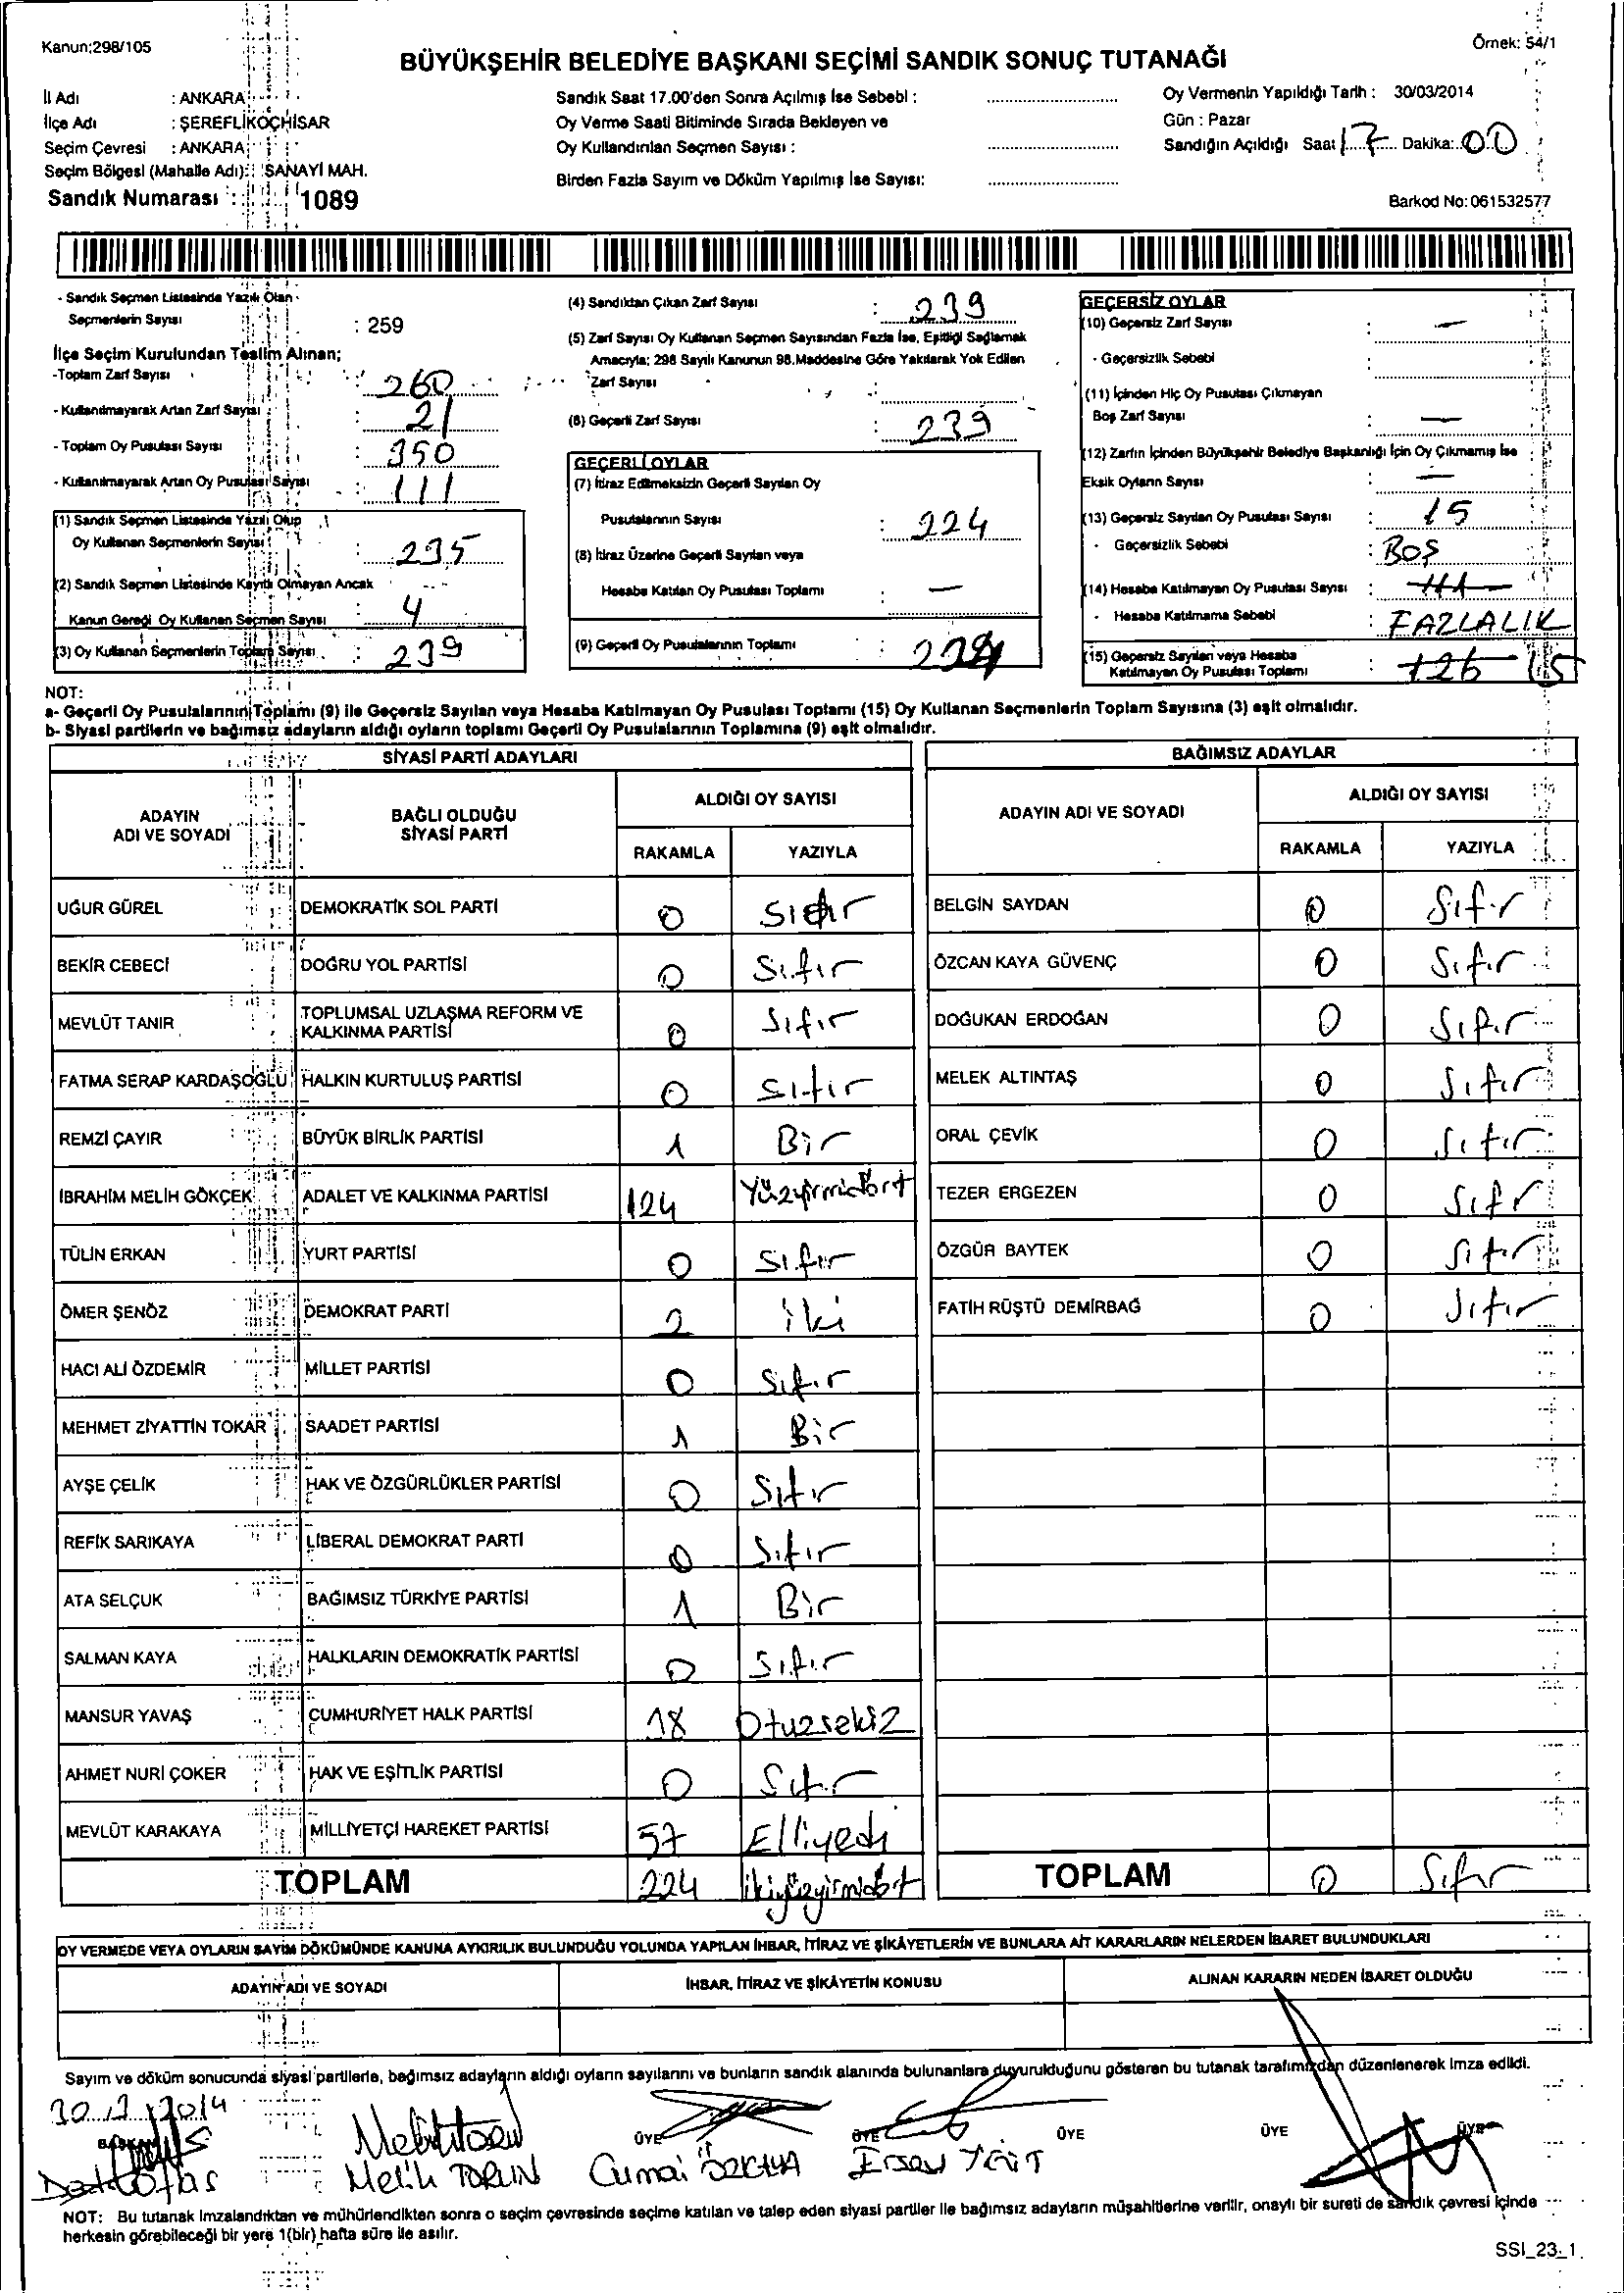 Kanun:298/105
Örnek: 54/1
BÜYÜKŞEHİR BELEDİYE BAŞKANI SEÇİMİ SANDIK SONUÇ TUTANAĞI
İl Adı : ANKARA
İlçe Adı : ŞEREFLİKOÇHİSAR
Seçim Çevresi : ANKARA
Seçim Bölgesi (Mahalle Adı): SANAYİ MAH.
Sandık Numarası : 1089
Sandık Saat 17.00'den Sonra Açılmış İse Sebebi :
Oy Verme Saati Bitiminde Sırada Bekleyen ve
Oy Kullandırılan Seçmen Sayısı :
Birden Fazla Sayım ve Döküm Yapılmış İse Sayısı:
Oy Vermenin Yapıldığı Tarih : 30/03/2014
Gün : Pazar
Sandığın Açıldığı Saat 17 Dakika: 00
Barkod No: 061532577
- Sandık Seçmen Listesinde Yazılı Olan
Seçmenlerin Sayısı : 259
İlçe Seçim Kurulundan Teslim Alınan;
-Toplam Zarf Sayısı : 260
- Kullanılmayarak Artan Zarf Sayısı : 21
- Toplam Oy Pusulası Sayısı : 350
- Kullanılmayarak Artan Oy Pusulası Sayısı : 111
(1) Sandık Seçmen Listesinde Yazılı Olup
Oy Kullanan Seçmenlerin Sayısı : 235
(2) Sandık Seçmen Listesinde Kayıtlı Olmayan Ancak
Kanun Gereği Oy Kullanan Seçmen Sayısı : 4
(3) Oy Kullanan Seçmenlerin Toplam Sayısı : 239
(4) Sandıktan Çıkan Zarf Sayısı : 239
(5) Zarf Sayısı Oy Kullanan Seçmen Sayısından Fazla İse, Eşitliği Sağlamak
Amacıyla; 298 Sayılı Kanunun 98.Maddesine Göre Yakılarak Yok Edilen
Zarf Sayısı :
(6) Geçerli Zarf Sayısı : 239
GEÇERLİ OYLAR
(7) İtiraz Edilmeksizin Geçerli Sayılan Oy
Pusulalarının Sayısı : 224
(8) İtiraz Üzerine Geçerli Sayılan veya
Hesaba Katılan Oy Pusulası Toplamı : —
(9) Geçerli Oy Pusulalarının Toplamı : 224
GEÇERSİZ OYLAR
(10) Geçersiz Zarf Sayısı : —
- Geçersizlik Sebebi :
(11) İçinden Hiç Oy Pusulası Çıkmayan
Boş Zarf Sayısı : —
(12) Zarfın İçinden Büyükşehir Belediye Başkanlığı İçin Oy Çıkmamış İse
Eksik Oyların Sayısı : —
(13) Geçersiz Sayılan Oy Pusulası Sayısı : 15
- Geçersizlik Sebebi : BOŞ
(14) Hesaba Katılmayan Oy Pusulası Sayısı : 111
- Hesaba Katılmama Sebebi : FAZLALIK
(15) Geçersiz Sayılan veya Hesaba
Katılmayan Oy Pusulası Toplamı : 126 15
NOT:
a- Geçerli Oy Pusulalarının Toplamı (9) ile Geçersiz Sayılan veya Hesaba Katılmayan Oy Pusulası Toplamı (15) Oy Kullanan Seçmenlerin Toplam Sayısına (3) eşit olmalıdır.
b- Siyasi partilerin ve bağımsız adayların aldığı oyların toplamı Geçerli Oy Pusulalarının Toplamına (9) eşit olmalıdır.
SİYASİ PARTİ ADAYLARI
ADAYIN ADI VE SOYADI BAĞLI OLDUĞU SİYASİ PARTİ ALDIĞI OY SAYISI
RAKAMLA YAZIYLA
UĞUR GÜREL DEMOKRATİK SOL PARTİ 0 Sıfır
BEKİR CEBECİ DOĞRU YOL PARTİSİ 0 Sıfır
MEVLÜT TANIR TOPLUMSAL UZLAŞMA REFORM VE KALKINMA PARTİSİ 0 Sıfır
FATMA SERAP KARDAŞOĞLU HALKIN KURTULUŞ PARTİSİ 0 Sıfır
REMZİ ÇAYIR BÜYÜK BİRLİK PARTİSİ 1 Bir
İBRAHİM MELİH GÖKÇEK ADALET VE KALKINMA PARTİSİ 124 Yüzyirmidört
TÜLİN ERKAN YURT PARTİSİ 0 Sıfır
ÖMER ŞENÖZ DEMOKRAT PARTİ 2 iki
HACI ALİ ÖZDEMİR MİLLET PARTİSİ 0 Sıfır
MEHMET ZİYATTİN TOKAR SAADET PARTİSİ 1 Bir
AYŞE ÇELİK HAK VE ÖZGÜRLÜKLER PARTİSİ 0 Sıfır
REFİK SARIKAYA LİBERAL DEMOKRAT PARTİ 0 Sıfır
ATA SELÇUK BAĞIMSIZ TÜRKİYE PARTİSİ 1 Bir
SALMAN KAYA HALKLARIN DEMOKRATİK PARTİSİ 0 Sıfır
MANSUR YAVAŞ CUMHURİYET HALK PARTİSİ 38 Otuzsekiz
AHMET NURİ ÇOKER HAK VE EŞİTLİK PARTİSİ 0 Sıfır
MEVLÜT KARAKAYA MİLLİYETÇİ HAREKET PARTİSİ 57 Elliyedi
TOPLAM 224 ikiyüzyirmidört
BAĞIMSIZ ADAYLAR
ADAYIN ADI VE SOYADI ALDIĞI OY SAYISI
RAKAMLA YAZIYLA
BELGİN SAYDAN 0 Sıfır
ÖZCAN KAYA GÜVENÇ 0 Sıfır
DOĞUKAN ERDOĞAN 0 Sıfır
MELEK ALTINTAŞ 0 Sıfır
ORAL ÇEVİK 0 Sıfır
TEZER ERGEZEN 0 Sıfır
ÖZGÜR BAYTEK 0 Sıfır
FATİH RÜŞTÜ DEMİRBAĞ 0 Sıfır
TOPLAM 0 Sıfır
OY VERMEDE VEYA OYLARIN SAYIM DÖKÜMÜNDE KANUNA AYKIRILIK BULUNDUĞU YOLUNDA YAPILAN İHBAR, İTİRAZ VE ŞİKÂYETLERİN VE BUNLARA AİT KARARLARIN NELERDEN İBARET BULUNDUKLARI
ADAYIN ADI VE SOYADI İHBAR, İTİRAZ VE ŞİKÂYETİN KONUSU ALINAN KARARIN NEDEN İBARET OLDUĞU
Sayım ve döküm sonucunda siyasi partilerle, bağımsız adayların aldığı oyların sayılarını ve bunların sandık alanında bulunanlara duyurulduğunu gösteren bu tutanak tarafımızdan düzenlenerek imza edildi.
30/3/2014
BAŞKAN ÜYE ÜYE ÜYE ÜYE ÜYE
Melih TORUN Cumai ÖZKAYA Ersoy YİĞİT
NOT: Bu tutanak imzalandıktan ve mühürlendikten sonra o seçim çevresinde seçime katılan ve talep eden siyasi partiler ile bağımsız adayların müşahitlerine verilir, onaylı bir sureti de sandık çevresi içinde
herkesin görebileceği bir yere 1(bir) hafta süre ile asılır.
SSI_23_1